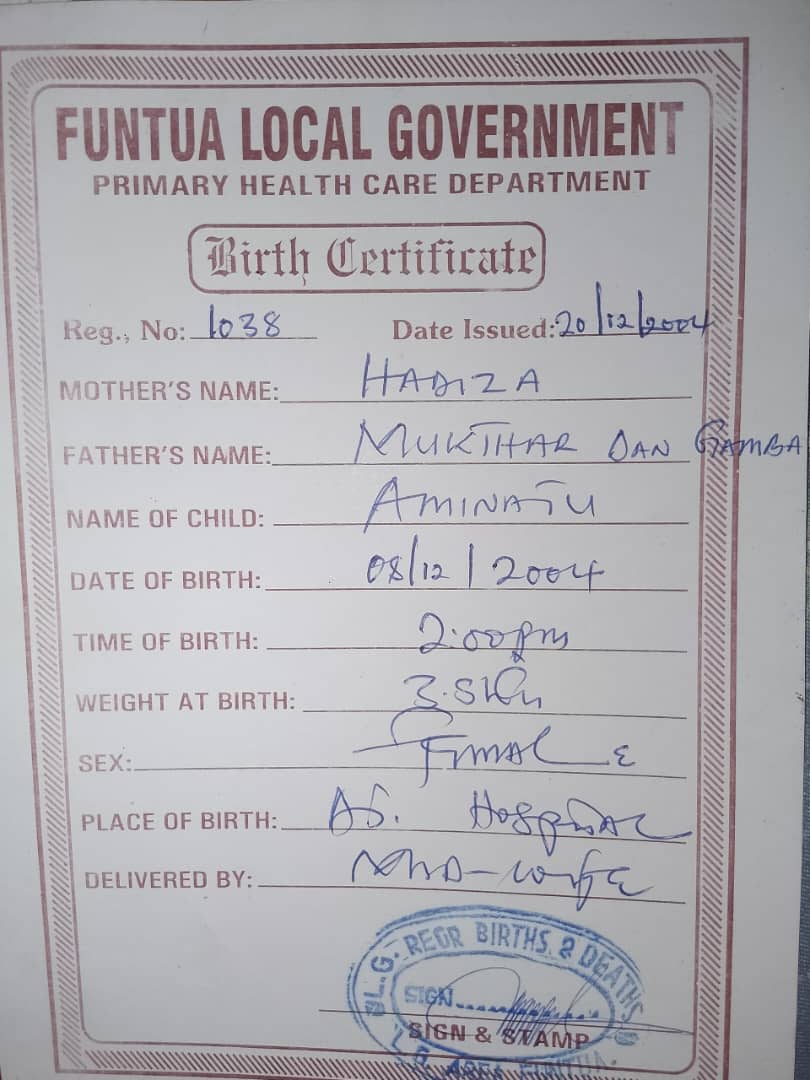 FUNTUA LOCAL GOVERNMENT
PRIMARY HEALTH CARE DEPARTMENT
Birth Certificate
Reg., No: 1038 Date Issued: 20/12/2004
MOTHER'S NAME: HADIZA
FATHER'S NAME: MUKTHAR DAN GAMBA
NAME OF CHILD: AMINATU
DATE OF BIRTH: 08/12/2004
TIME OF BIRTH: 2:00pm
WEIGHT AT BIRTH: 3.5kg
SEX: FEMALE
PLACE OF BIRTH: Hospital
DELIVERED BY: MID-wife
L.G. REGR BIRTHS & DEATHS
SIGN
SIGN & STAMP
L.G. AREA FUNTUA